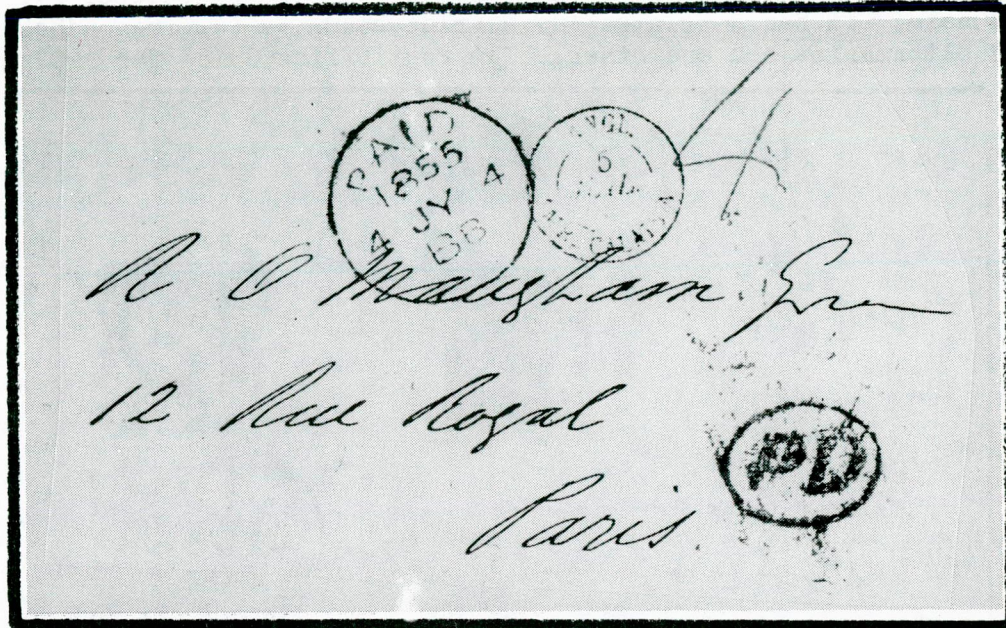 PAID
1855
4 JY 4
185
ANGL.
5
AMB. CALAIS
4
R O Maugham. Esqre
12 Rue Royal
Paris.
PD